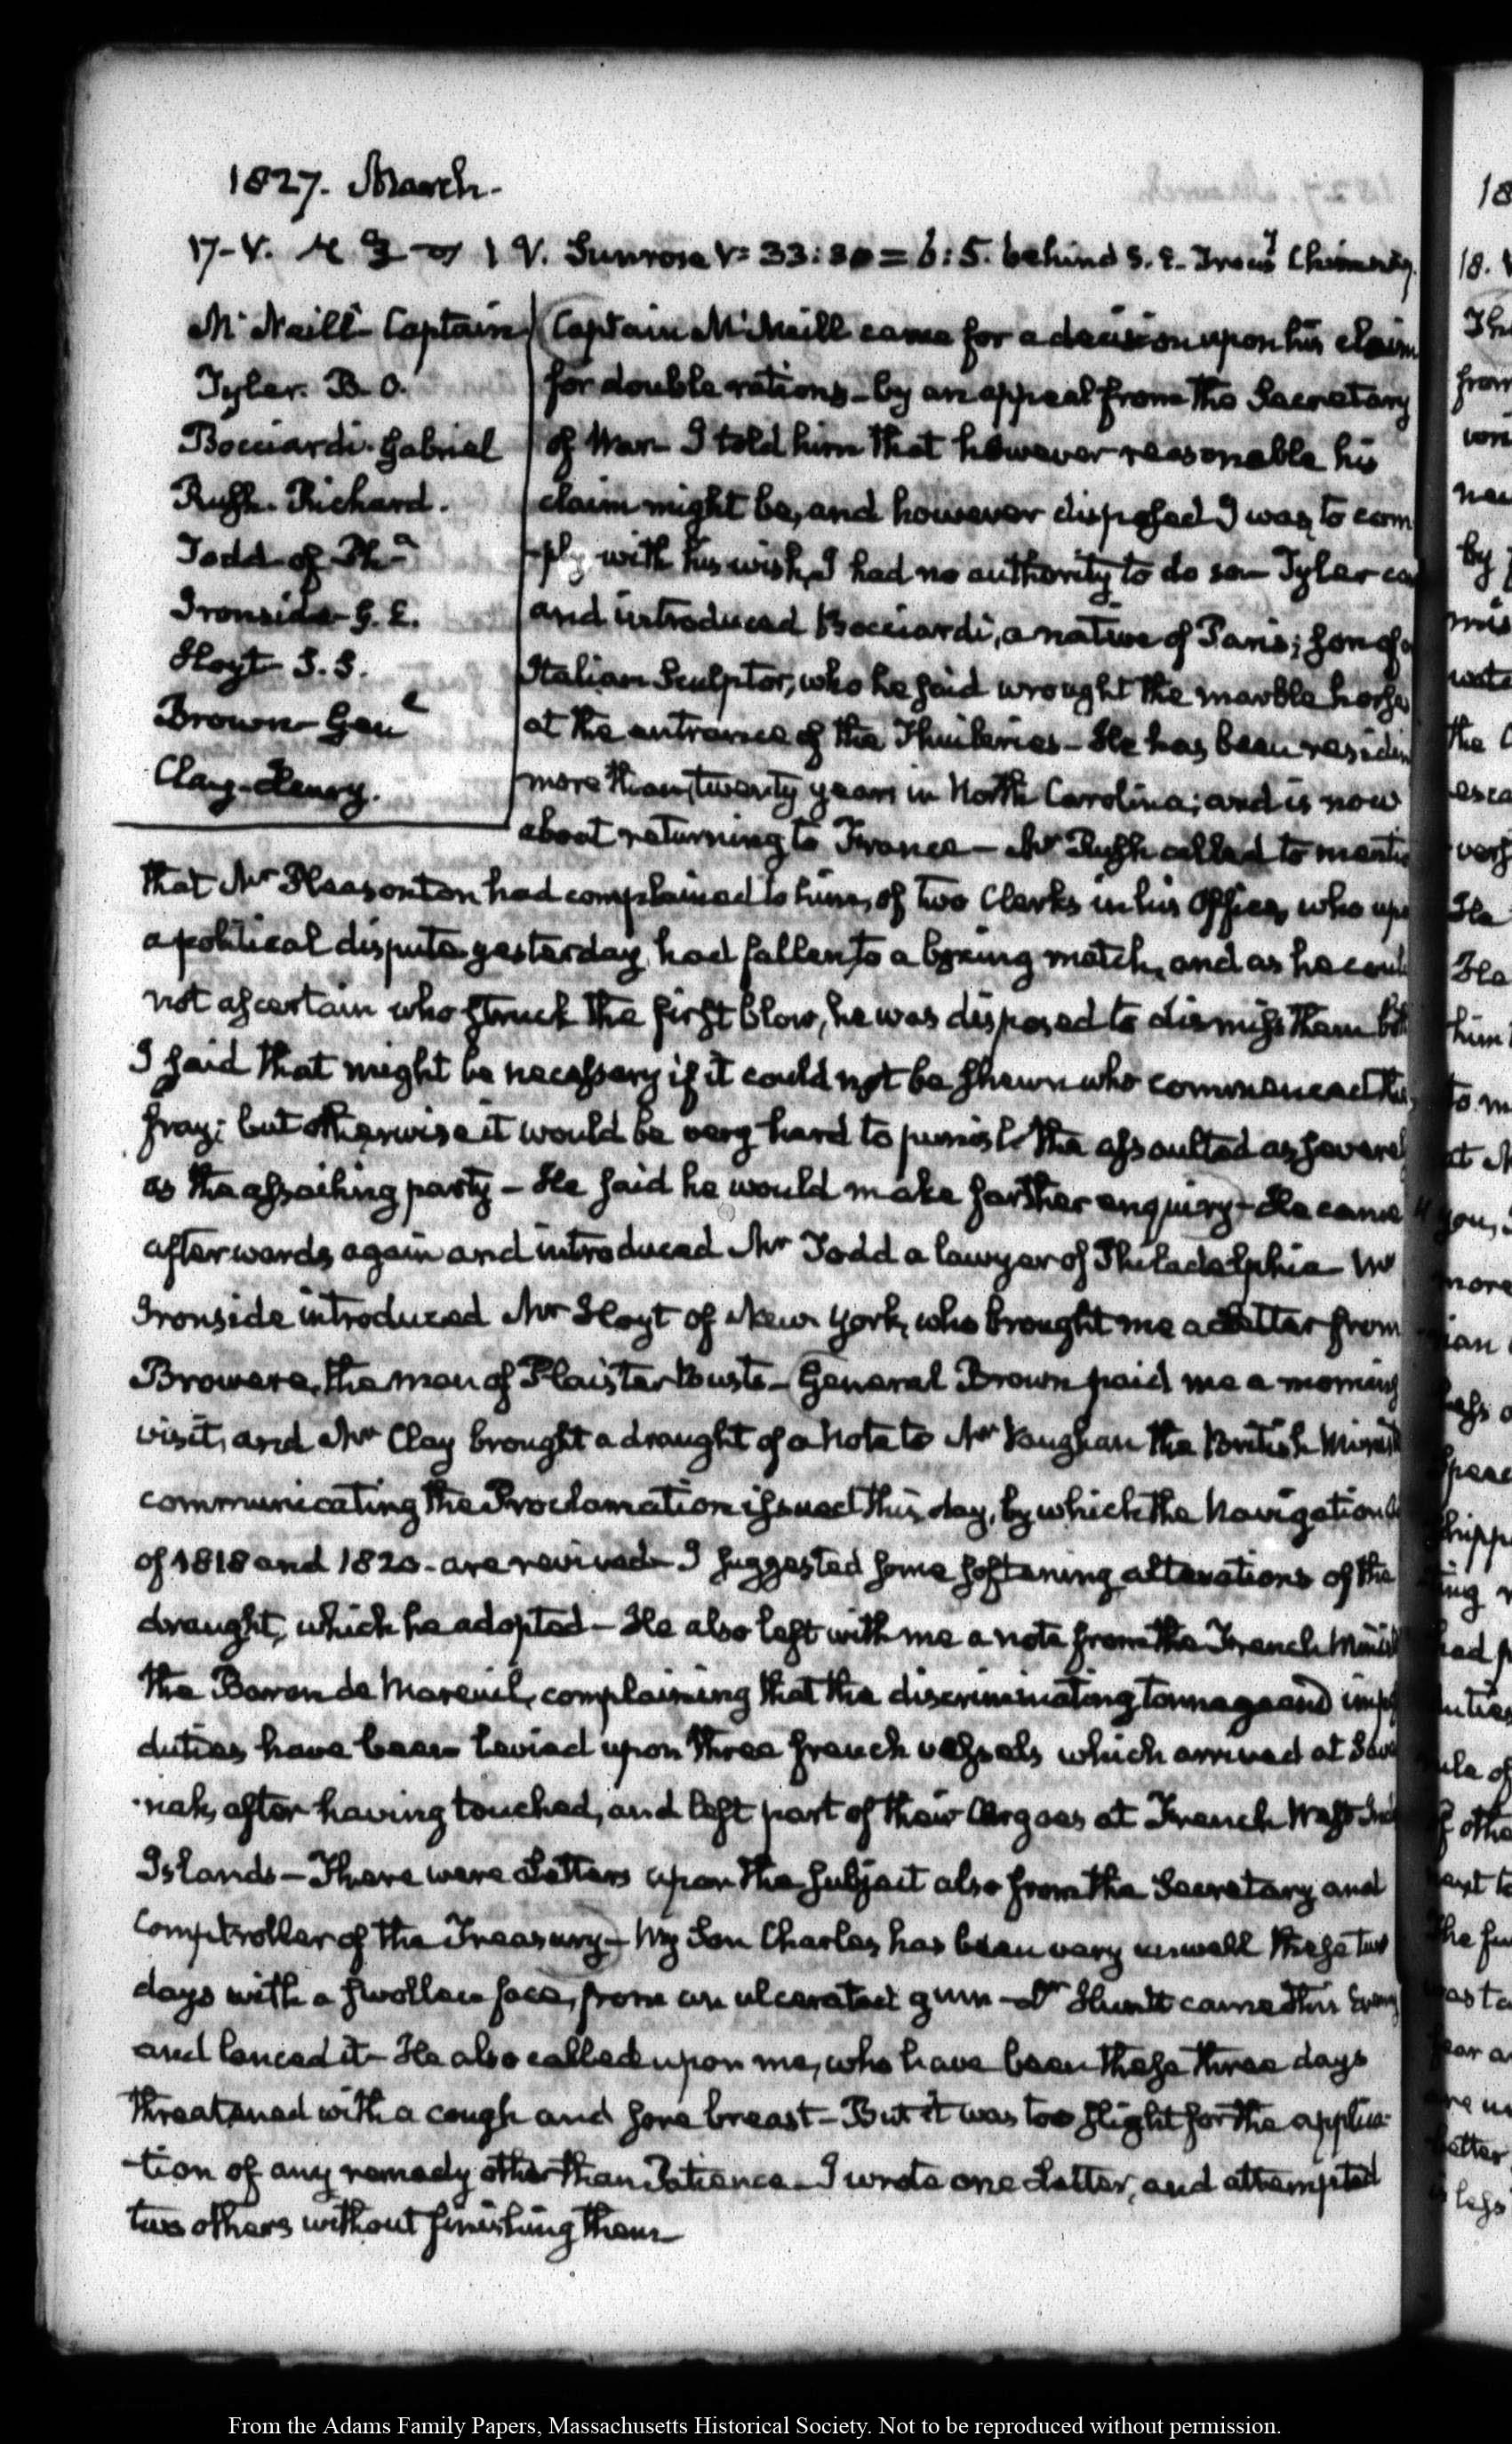 1827. March.
17- V. 1 V. Sunrose V= 33:30 = 6:5. behind S. E. Chimney.
Mc. Neill- Captain
Tyler. B. O.
Bocciardi. Gabriel
Rush. Richard.
Todd of Pha
Ironside- G. E.
Hoyt- S. S.
Brown- Genl
Clay- Henry.
Captain McNeill came for a decision upon his claim
for double rations- by an appeal from the Secretary
of War- I told him that however reasonable his
claim might be, and however disposed I was, to com
-ply with his wish, I had no authority to do so- Tyler
and introduced Bocciardi, a native of Paris; son of
Italian Sculptor, who he said wrought the marble horses
at the entrance of the Thuileries- He has been residin
more than twenty years in North Carolina; and is now
about returning to France- Mr Rush called to mentio
that Mr Pleasonton had complained to him, of two Clerks in his Office, who upo
a political dispute yesterday, had fallen to a boxing match, and as he coul
not ascertain who struck the first blow, he was disposed to dismiss them both
I said that might be necessary if it could not be shewn who commenced the
fray; but otherwise it would be very hard to punish the assaulted as severely
as the assailing party- He said he would make farther enquiry- He came
afterwards again and introduced Mr Todd a lawyer of Philadelphia- Mr
Ironside introduced Mr Hoyt of New-York, who brought me a Letter from
Browere, the man of Plaister Busts- General Brown paid me a morning
visit, and Mr Clay brought a draught of a Note to Mr Vaughan the British Minist
communicating the Proclamation issued this day, by which the Navigation
of 1818 and 1820- are revived- I suggested some softening alterations of the
draught, which he adopted- He also left with me a note from the French Minist
the Baron de Mareuil, complaining that the discriminating tonnage and impo
duties have been levied upon three french vessels which arrived at Sava
-nah, after having touched, and left part of their Cargoes at French West Ind
Islands- There were Letters upon the subject also from the Secretary and
Comptroller of the Treasury- My Son Charles has been very unwell these two
days with a swollen face, from an ulcerated gum- Dr Huntt came this Evening
and lanced it- He also called upon me, who have been these three days
threatened with a cough and sore breast- But it was too slight for the applica-
-tion of any remedy other than Patience- I wrote one Letter, and attempted
two others without finishing them-
From the Adams Family Papers, Massachusetts Historical Society. Not to be reproduced without permission.